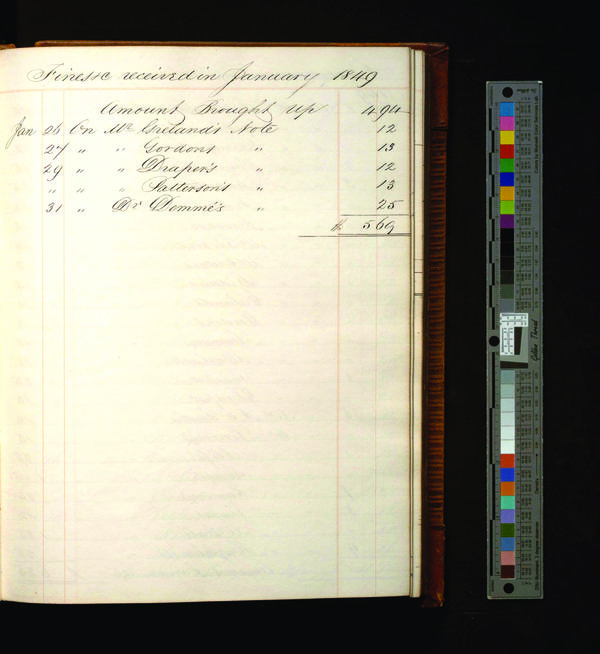 Fines &c received in January 1849
Amount Brought Up 494
Jan 26 On Mr Ireland's Note 12
27 " " Gordon's " 13
29 " " Draper's " 12
" " " Patterson's " 13
31 " Dr Demmé's " 25
$ 569
Golden Thread